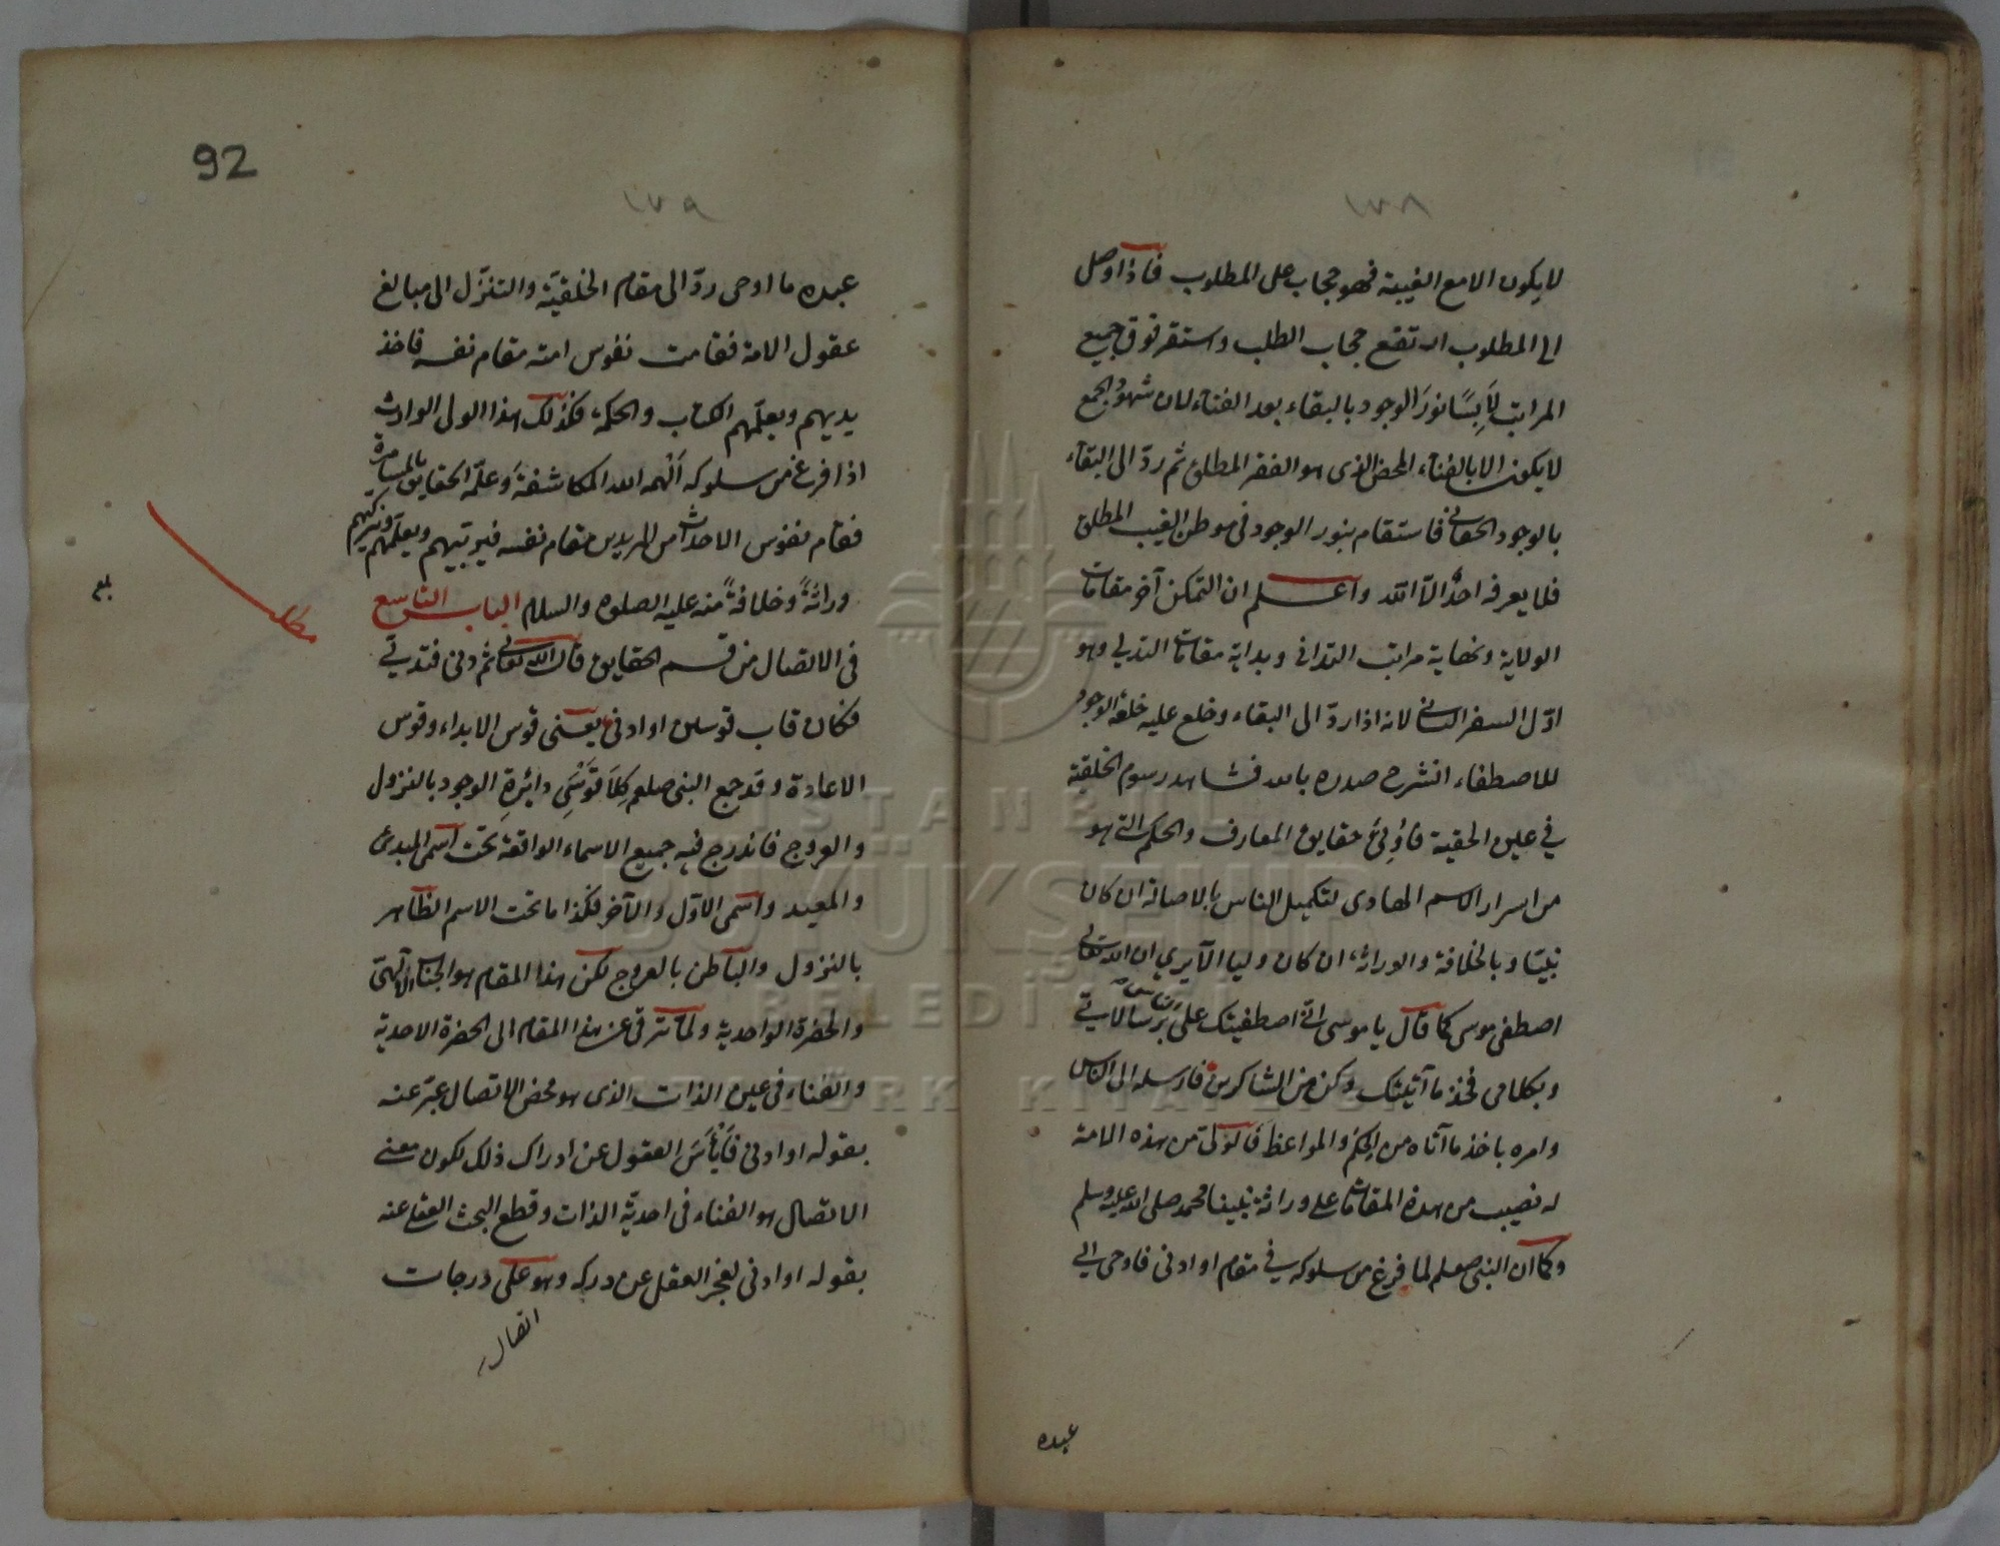 ١٧٨
لا يكون الا مع الغيبة فهو حجاب على المطلوب فاذا وصل
الى المطلوب ارتفع حجاب الطلب واستقر فوق جميع
المراتب لَابِسًا نورَ الوجود بالبقاء بعد الفناء لان شهود الجمع
لا يكون الا بالفناء المحض الذى هو الفقر المطلق ثم ردّ الى البقاء
بالوجود الحقانى فاستقام بنور الوجود فى موطن الغيب المطلق
فلا يعرفه احدٌ الّا اللّه واعلم ان التمكن آخر مقامات
الولاية ونهاية مراتب التدانى وبداية مقامات التدلى وهو
اوّل السفر الثانى لانه اذا ردّ الى البقاء وخلع عليه خلعة الوجود
للاصطفاء انشرح صدره بالله فشاهد رسوم الخلقية
في عين الحقية فاُوتِيَ حقايق المعارف والحكم التى هو
من اسرار الاسم الهادى لتكميل الناس بالاصالة ان كان
نبيّا وبالخلافة والوراثة ان كان وليا الا يرى ان الله تعالى
اصطفى موسى كما قال يا موسى انى اصطفيتك على الناس برسالاتي
وبكلامى فخذ ما آتيتك وكن من الشاكرين فارسله الى الناس
وامره باخذ ما آتاه من الحِكَم والمواعظ فالولى من هذه الامة
له نصيب من هذه المقامات على وراثة نبينا محمد صلى الله عليه وسلم
وكما ان النبى صلعم لما فرغ من سلوكه في مقام او ادنى فاوحى الى
عبده
92
١٧٩
عبده ما اوحى ردّ الى مقام الخلقيّة والتنزّل الى مبالغ
عقول الامة فقامت نفوس امته مقام نفسه فاخذ
يديهم ويعلّمهم الكتاب والحكمة فكذلك هذا الولى الوارث
اذا فرغ من سلوكه اَلْهمه الله المكاشفةَ وعلّمه الحقايق بالمسامرة
فقام نفوس الاحداث من المريدين مقام نفسه فيربيهم ويعلّمهم ويزكيهم
وراثةً وخلافةً منه عليه الصلوة والسلام الباب التاسع
فى الاتصال من قسم الحقايق قال الله تعالى ثم دنى فتدلى
فكان قاب قوسين او ادنى يعنى قوس الابداء وقوس
الاعادة وقد جمع النبى صلعم كِلَا قَوْسَيْ دائرةِ الوجود بالنزول
والعروج فاندرج فيه جميع الاسماء الواقعة تحت اسمى المبدئ
والمعيد واسمى الاوّل والآخر وكذا ما تحت الاسم الظاهر
بالنزول والباطن بالعروج لكن هذا المقام هو الجناب الالهى
والحضرة الواحدية ولما ترقى عن هذا المقام الى الحضرة الاحدية
والفناء فى عين الذات الذى هو محض الاتصال عبّر عنه
بقوله او ادنى فاَيْأَسَ العقول عن ادراك ذلك لكون معنى
الاتصال هو الفناء فى احدية الذات وقطع البحث العقلى عنه
بقوله او ادنى لعجز العقل عن دركه وهو على درجات
اتصال
مطلب
بلغ
ISTANBUL
BÜYÜKŞEHİR
BELEDİYESİ
ATATÜRK KİTAPLIĞI